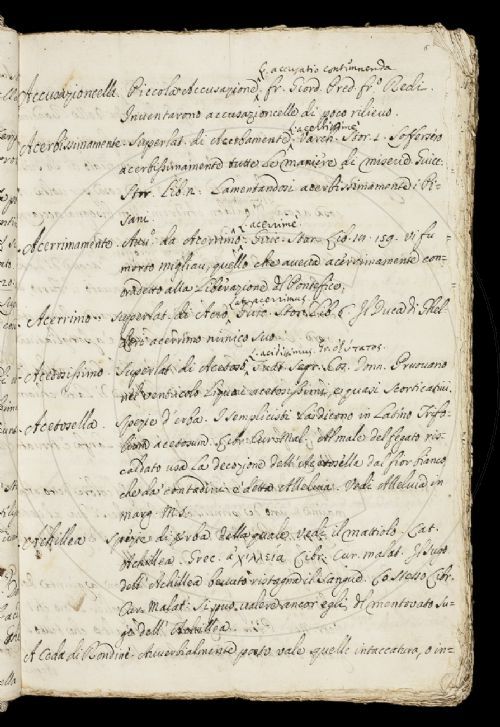 6
L. accusatio contemnenda
Accusazioncella. Piccola Accusazione. fr. Giord. Pred. fr. Redi.
Inventarono accusazioncelle di poco rilievo.
L. acerbissime
Acerbissimamente. Superlat. di Acerbamente. Varch. Stor. 1. Sofferito
acerbissimamente tutte le maniere di miserie Guicc.
Stor. Lib. 2. Lamentandosi acerbissimamente i Pi-
sani
L. acerrime
Acerrimamente. Avv. da Acerrimo. Guicc. Stor. Lib. 10. 159. Vi fu
morto quello che aveva acerrimamente con-
tradetto alla Liberazione del Pontefice.
Lat. acerrimus
Acerrimo. Superlat. di Acro. Guic. Stor. Lib. 6 Il Duca di Ghel-
leri acerrimo nimico suo
L. acidissimus. Gr. ὀξύτατος
Acetosissimo Superlat. di Acetoso. Tratt. Segr. Cos. Donn. Pruovano
nel ventricolo liquori acetosissimi, e quasi scorticativi.
Acetosella. Spezie d'erba. I semplicisti la dicono in Latino Trifo-
lium acetosum. Libr. Cur. Mal. Al male del fegato ris-
caldato usa la decozione dell'Acetosella dal fior bianco,
che da' contadini è detta Alleluia. Vedi Alleluia in
marg. M.S.
Achillea Spezie di Erba della quale vedi il Mattiolo. Lat.
Achillea. Grec. ἀχίλλεια Libr. Cur. malat. Il sugo
dell'Achillea bevuto ristagna il sangue. Lo stesso Libr.
Cur. Malat. Si può valere ancor egli del mentovato su-
go dell'Achillea.
A Coda di Rondine Avverbialmente posto vale quelle intaccatura, o in-